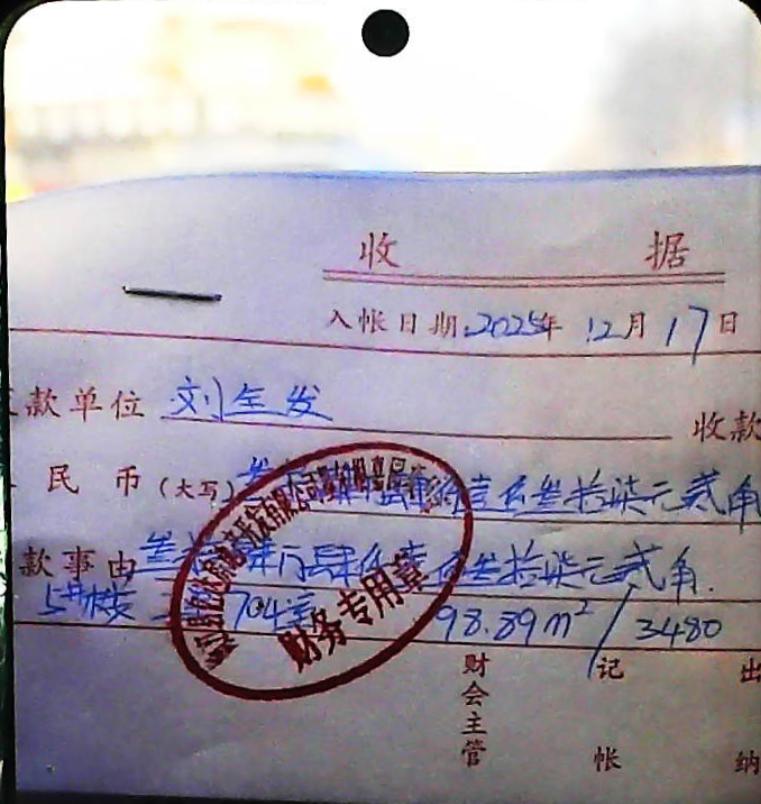 收 据
入帐日期 2025年 12月 17日
款单位 刘全发 收款
民币(大写) 叁拾肆万肆仟壹佰叁拾柒元贰角
款事由 叁拾肆万肆仟壹佰叁拾柒元贰角.
5#楼 704室 98.89m²/3480
财务专用章
财会主管 记帐 出纳